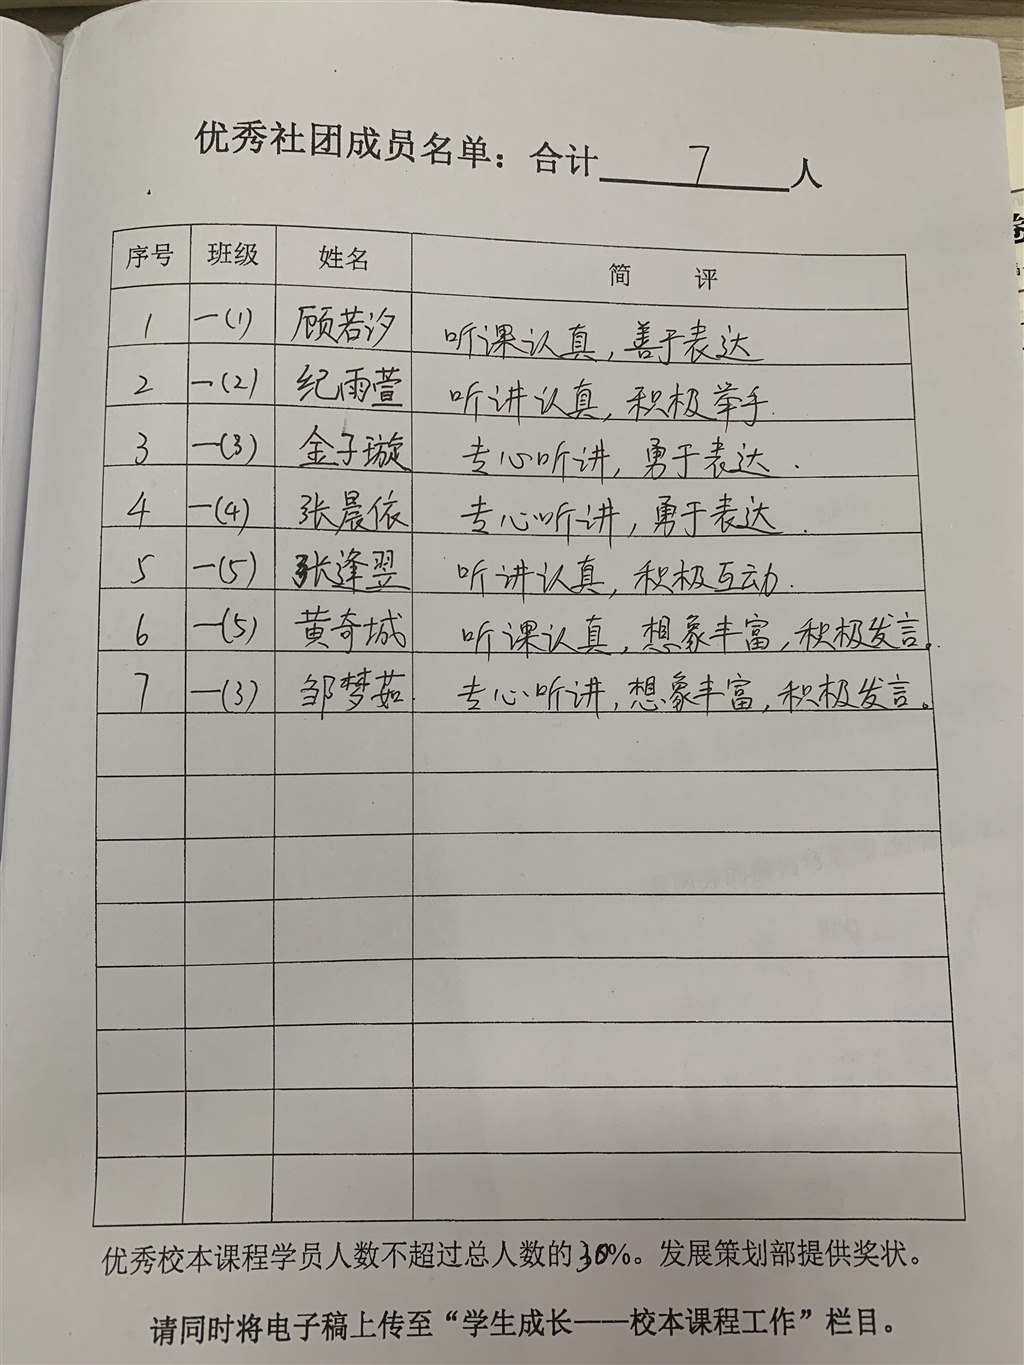 优秀社团成员名单：合计 7 人
序号 班级 姓名 简 评
1 一(1) 顾若汐 听课认真，善于表达
2 一(2) 纪雨萱 听讲认真，积极举手.
3 一(3) 金子璇 专心听讲，勇于表达.
4 一(4) 张晨依 专心听讲，勇于表达.
5 一(5) 张逢翌 听讲认真，积极互动.
6 一(5) 黄奇城 听课认真，想象丰富，积极发言。
7 一(3) 邹梦茹 专心听讲，想象丰富，积极发言。
优秀校本课程学员人数不超过总人数的30%。发展策划部提供奖状。
请同时将电子稿上传至“学生成长——校本课程工作”栏目。